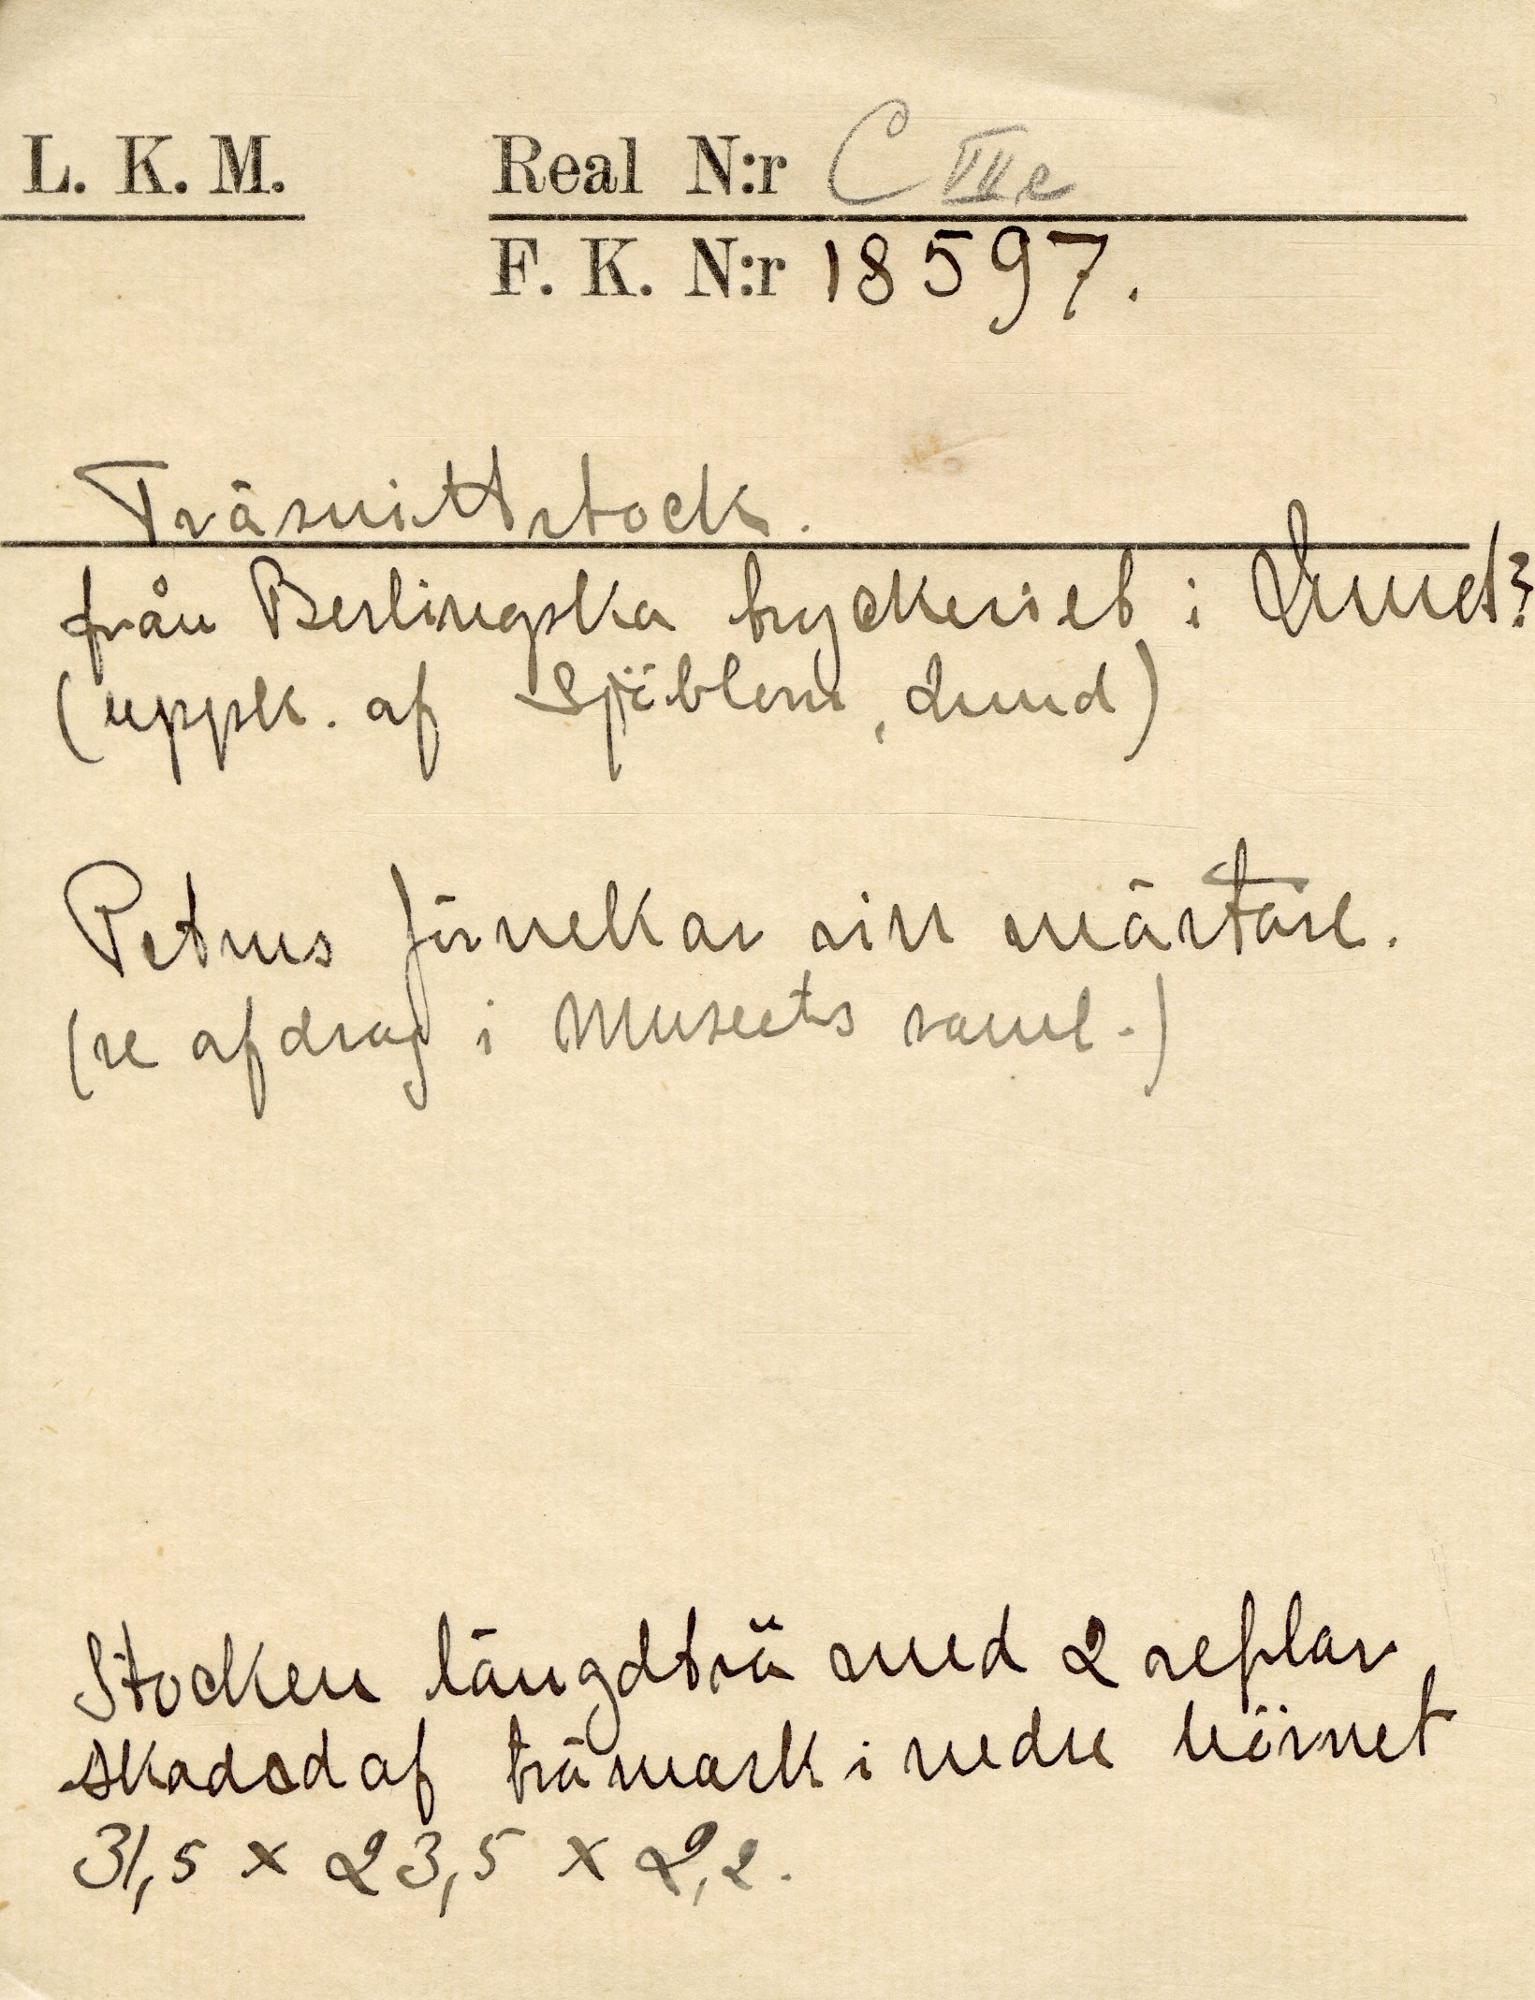 L. K. M. Real N:r C VII e
F. K. N:r 18597.
Träsnittstock.
från Berlingska tryckeriet i Lund?
(uppk. af Sjöblom, Lund)
Petrus förnekar sin mästare.
(se afdrag i Museets saml.)
Stocken längdträ med 2 reglar
skadad af trämask i nedre hörnet
31,5 x 23,5 x 2,2.